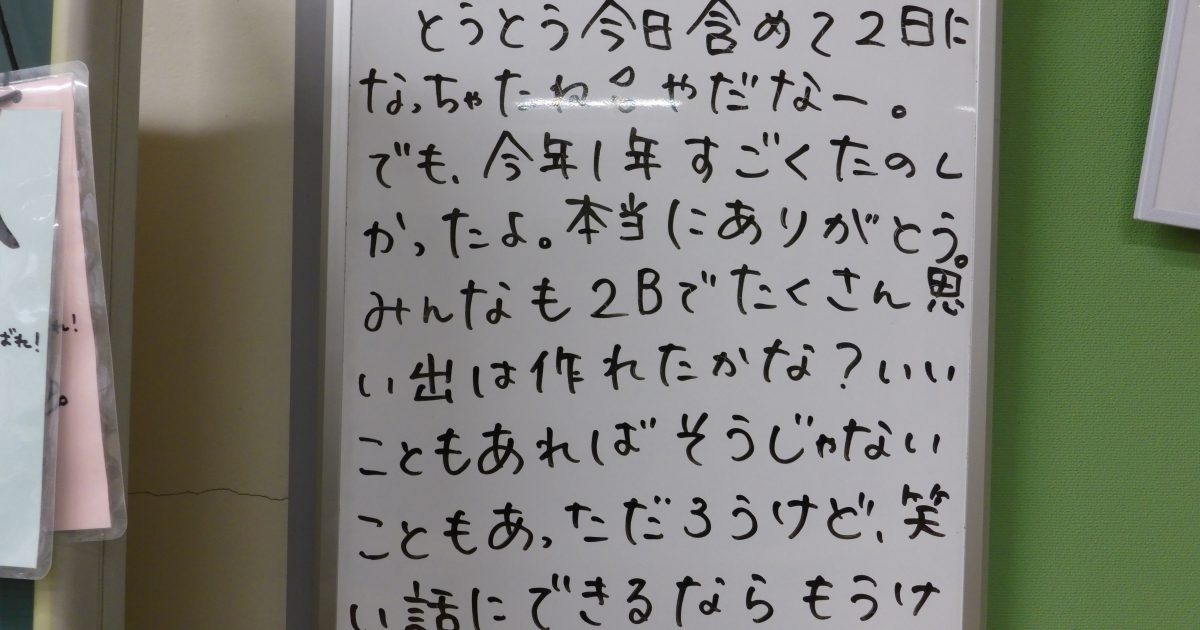 とうとう今日含めて2日に
なっちゃたね。やだなー。
でも、今年1年すごくたのし
かったよ。本当にありがとう。
みんなも2Bでたくさん思
い出は作れたかな?いい
こともあればそうじゃない
こともあっただろうけど、笑
い話にできるならもうけ
ばれ!
れ!